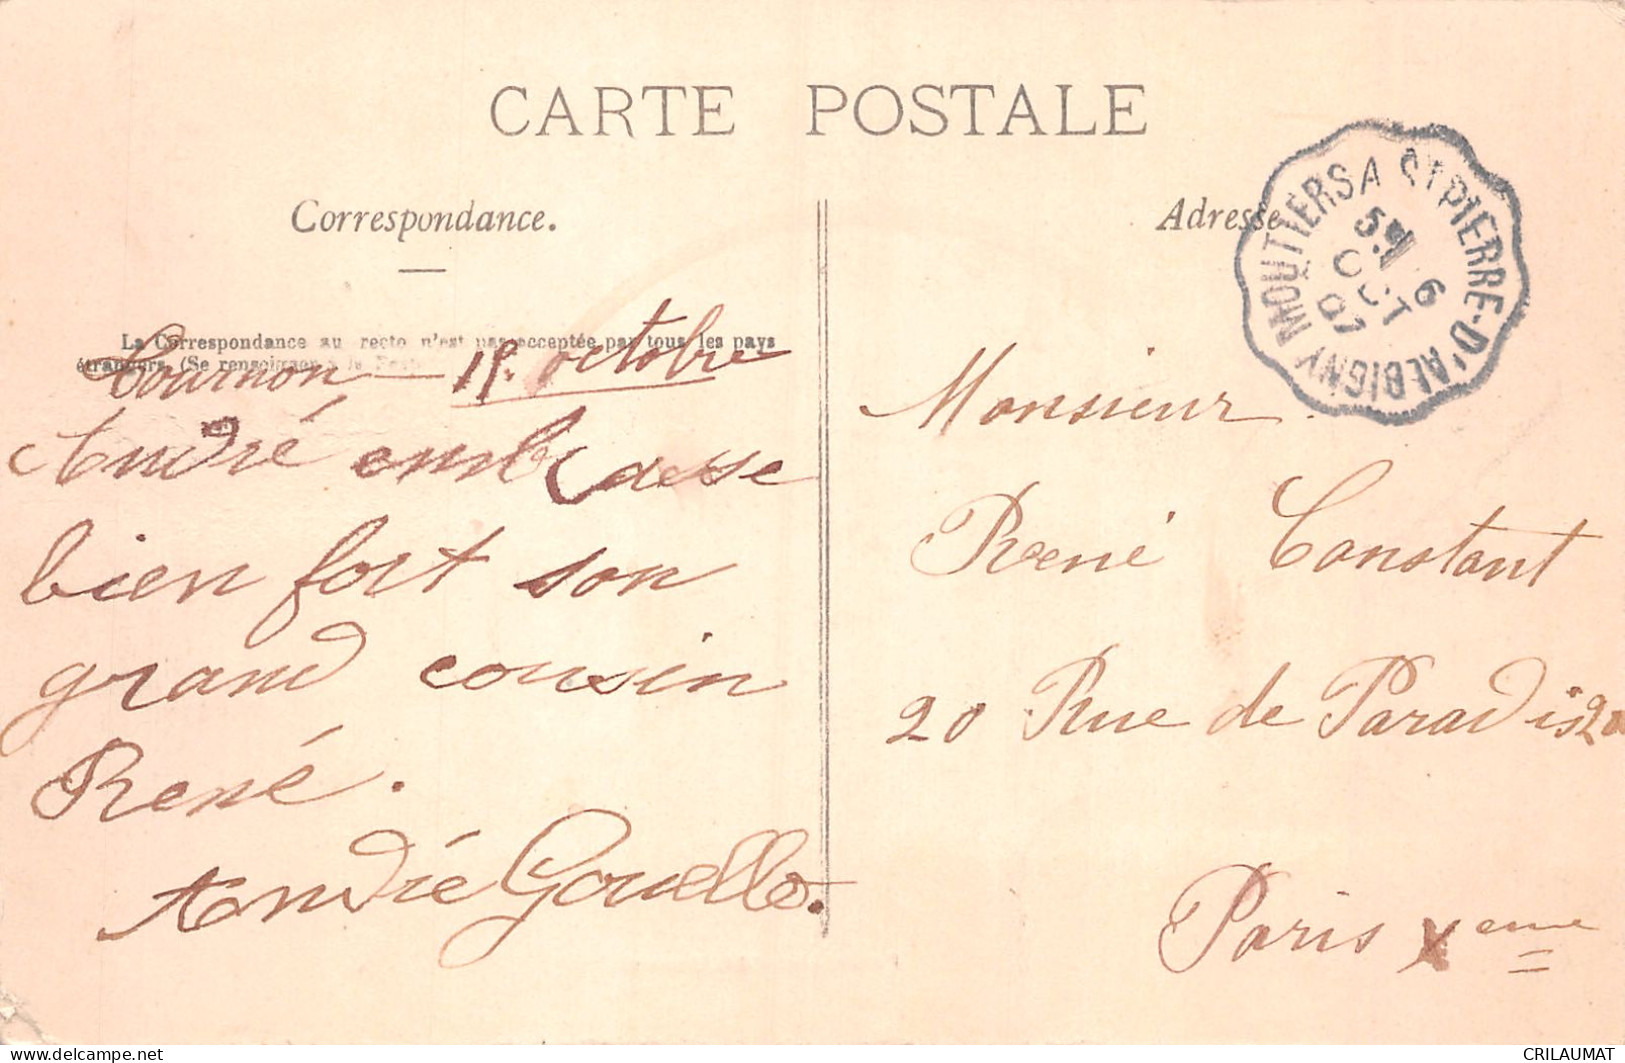 CARTE POSTALE
Correspondance.
Adresse
MOUTIERS A ST PIERRE-D'ALBIGNY
6
OCT
07
La Correspondance au recto n'est pas acceptée par tous les pays
étrangers. (Se renseigner à la Poste
Tournon — octobre
André embrasse
bien fort son
grand cousin
René.
André
Monsieur
René Constant
20 Rue de Paradis 20
Paris Xeme
delcampe.net
CRILAUMAT